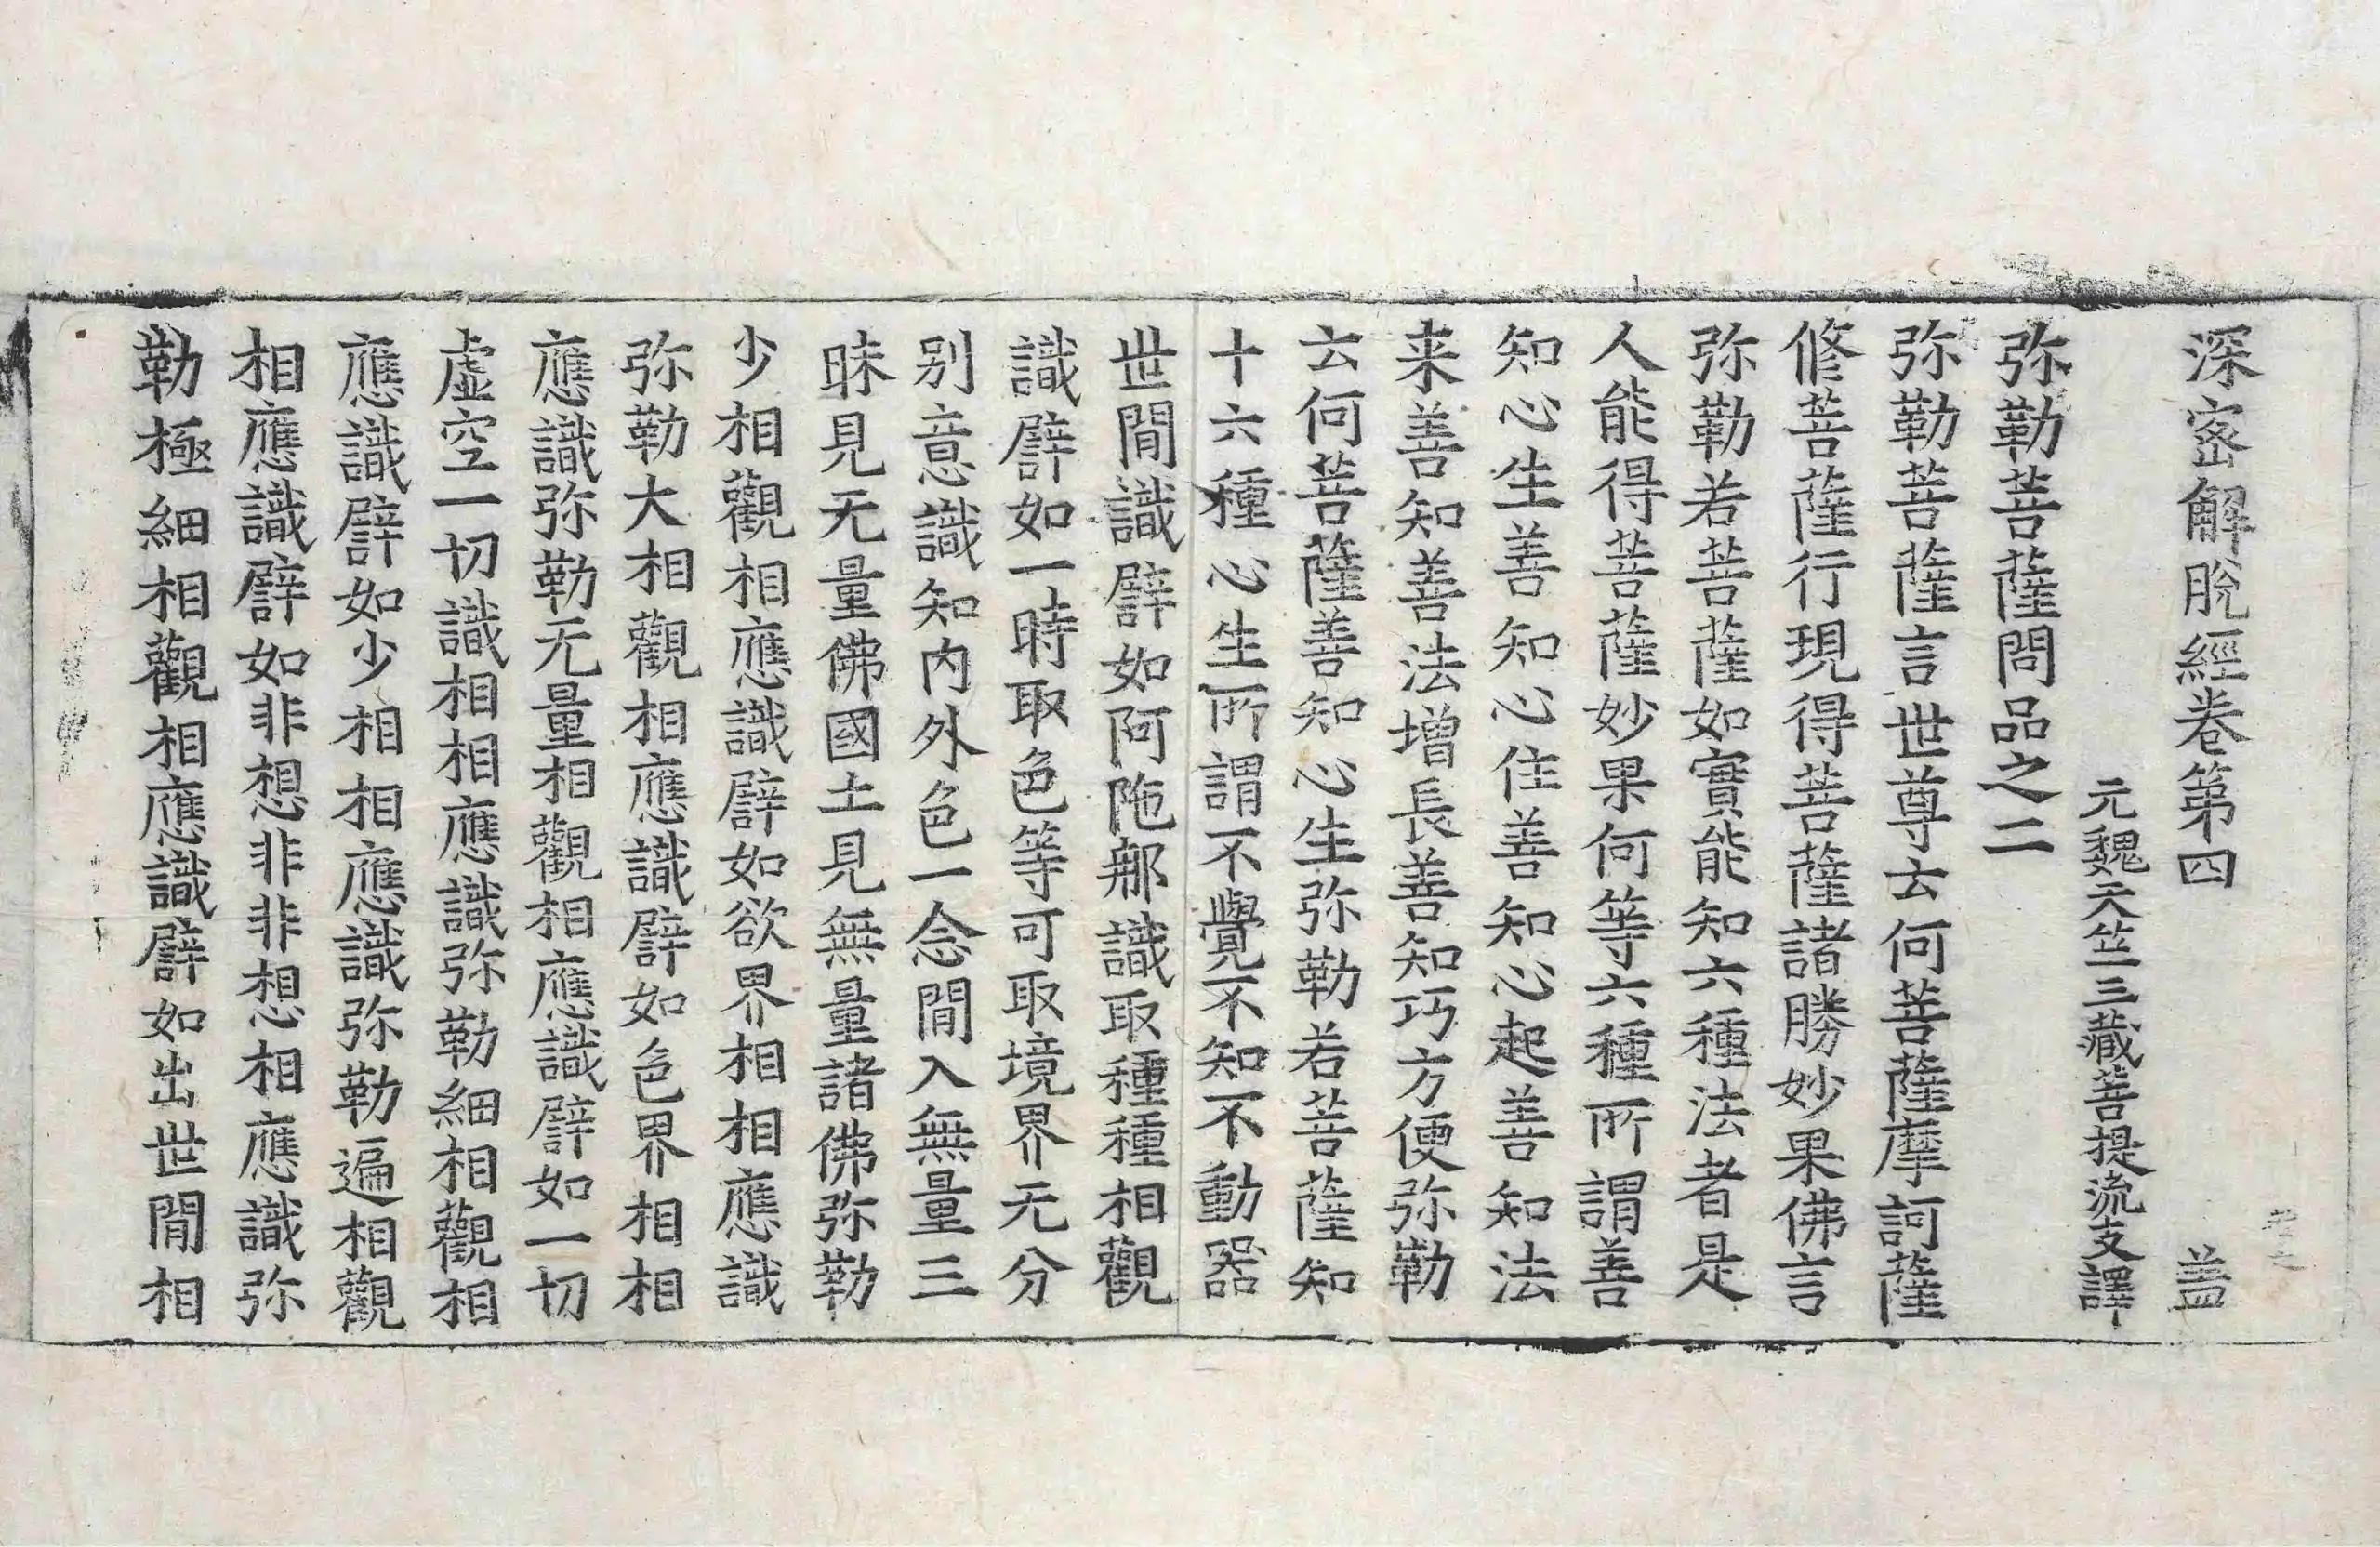 深密解脫經卷第四 盖
元魏天竺三藏菩提流支譯
弥勒菩薩問品之二
弥勒菩薩言世尊云何菩薩摩訶薩
修菩薩行現得菩薩諸勝妙果佛言
弥勒若菩薩如實能知六種法者是
人能得菩薩妙果何等六種所謂善
知心生善知心住善知心起善知法
来善知善法增長善知巧方便弥勒
云何菩薩善知心生弥勒若菩薩知
十六種心生所謂不覺不知不動器
世間識譬如阿陁那識取種種相觀
識譬如一時取色等可取境界无分
别意識知内外色一念間入無量三
昧見无量佛國土見無量諸佛弥勒
少相觀相應識譬如欲界相相應識
弥勒大相觀相應識譬如色界相相
應識弥勒无量相觀相應識譬如一切
虛空一切識相相應識弥勒細相觀相
應識譬如少相相應識弥勒遍相觀
相應識譬如非想非非想相應識弥
勒極細相觀相應識譬如出世間相